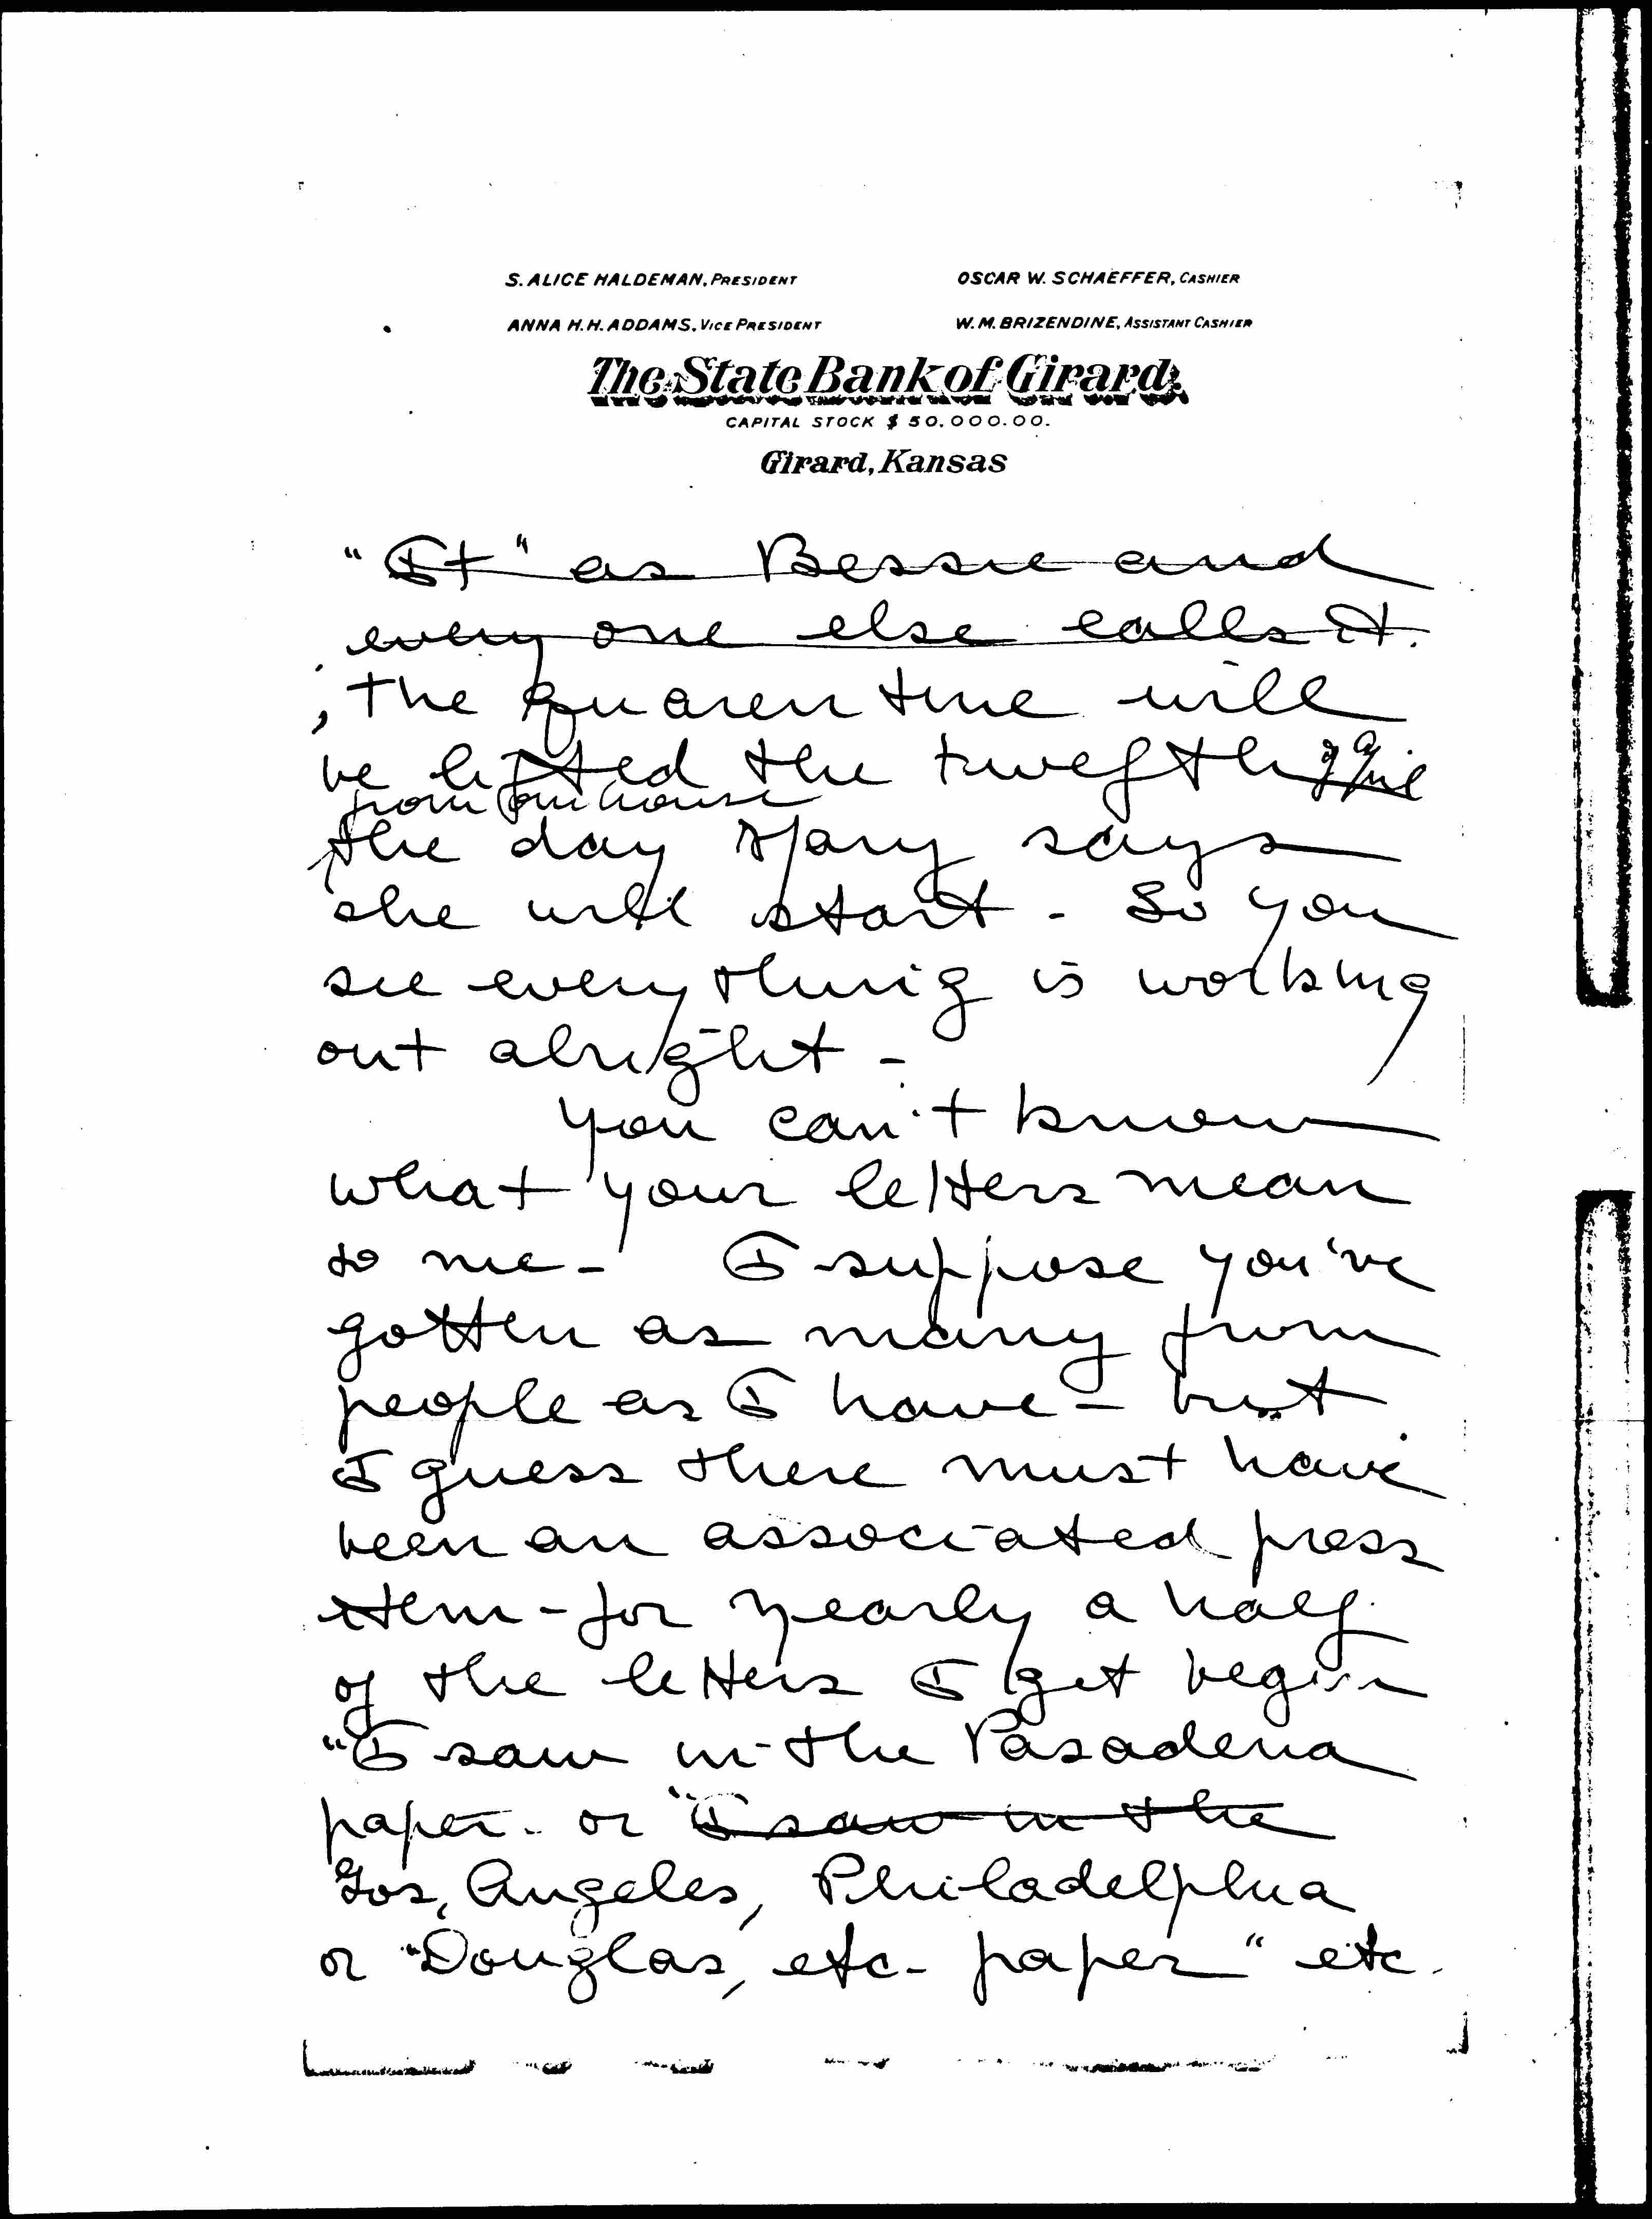 S. ALICE HALDEMAN, PRESIDENT
OSCAR W. SCHAEFFER, CASHIER
ANNA H. H. ADDAMS, VICE PRESIDENT
W. M. BRIZENDINE, ASSISTANT CASHIER
The State Bank of Girard,
CAPITAL STOCK $ 50,000.00.
Girard, Kansas
"It" as Bessie and
every one else calls it.
, the quarentine will
be lifted the twefth
from our house
the day Mary says
she will start - So you
see everything is working
out alright -
You can't know
what your letters mean
to me - I suppose you've
gotten as many from
people as I have - but
I guess there must have
been an associated press
item - for nearly a half
of the letters I get begin
"I saw in the Pasadena
paper - or "I saw in the
Los, Angeles, Philadelphia
or "Douglas, etc - paper" etc.